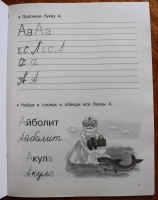 • Пропиши букву А.
Аа Аа
А а
А А
• Найди в словах и обведи все буквы А.
Айболит
Айболит
Акула
Акула